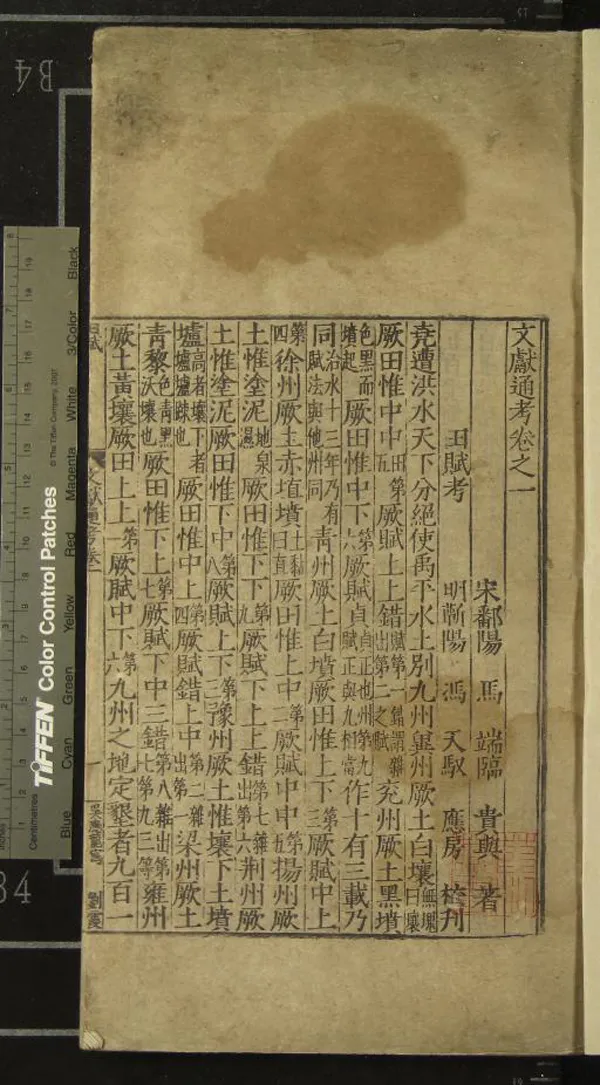 文獻通考卷之一
宋鄱陽 馬 端臨 貴與 著
田賦考 明蘄陽 馮 天馭 應房 校刊
堯遭洪水天下分絕使禹平水土別九州兾州厥土白壤無塊曰壤
厥田惟中中田第五厥賦上上錯賦第一錯謂雜出第二之賦兖州厥土黑墳
色黑而墳起厥田惟中下第六厥賦貞貞正也州第九賦正與九相當作十有三載乃
同治水十三年乃有賦法與他州同青州厥土白墳厥田惟上下第三厥賦中上
第四徐州厥土赤埴墳土黏曰埴厥田惟上中第二厥賦中中第五揚州厥
土惟塗泥地泉濕厥田惟下下第九厥賦下上上錯第七雜出第六荆州厥
土惟塗泥厥田惟下中第八厥賦上下第三豫州厥土惟壤下土墳
壚高者壤下者壚壚疎也厥田惟中上第四厥賦錯上中第二雜出第一梁州厥土
青黎色青黑沃壤也厥田惟下上第七厥賦下中三錯第八雜出第七第九三等雍州
厥土黃壤厥田上上第一厥賦中下第六九州之地定墾者九百一
田賦
文獻通考卷一
一
劉霞
TIFFEN Color Control Patches
© The Tiffen Company, 2007
Blue Cyan Green Yellow Red Magenta White 3/Color Black
Inches
Centimetres
B4
B4